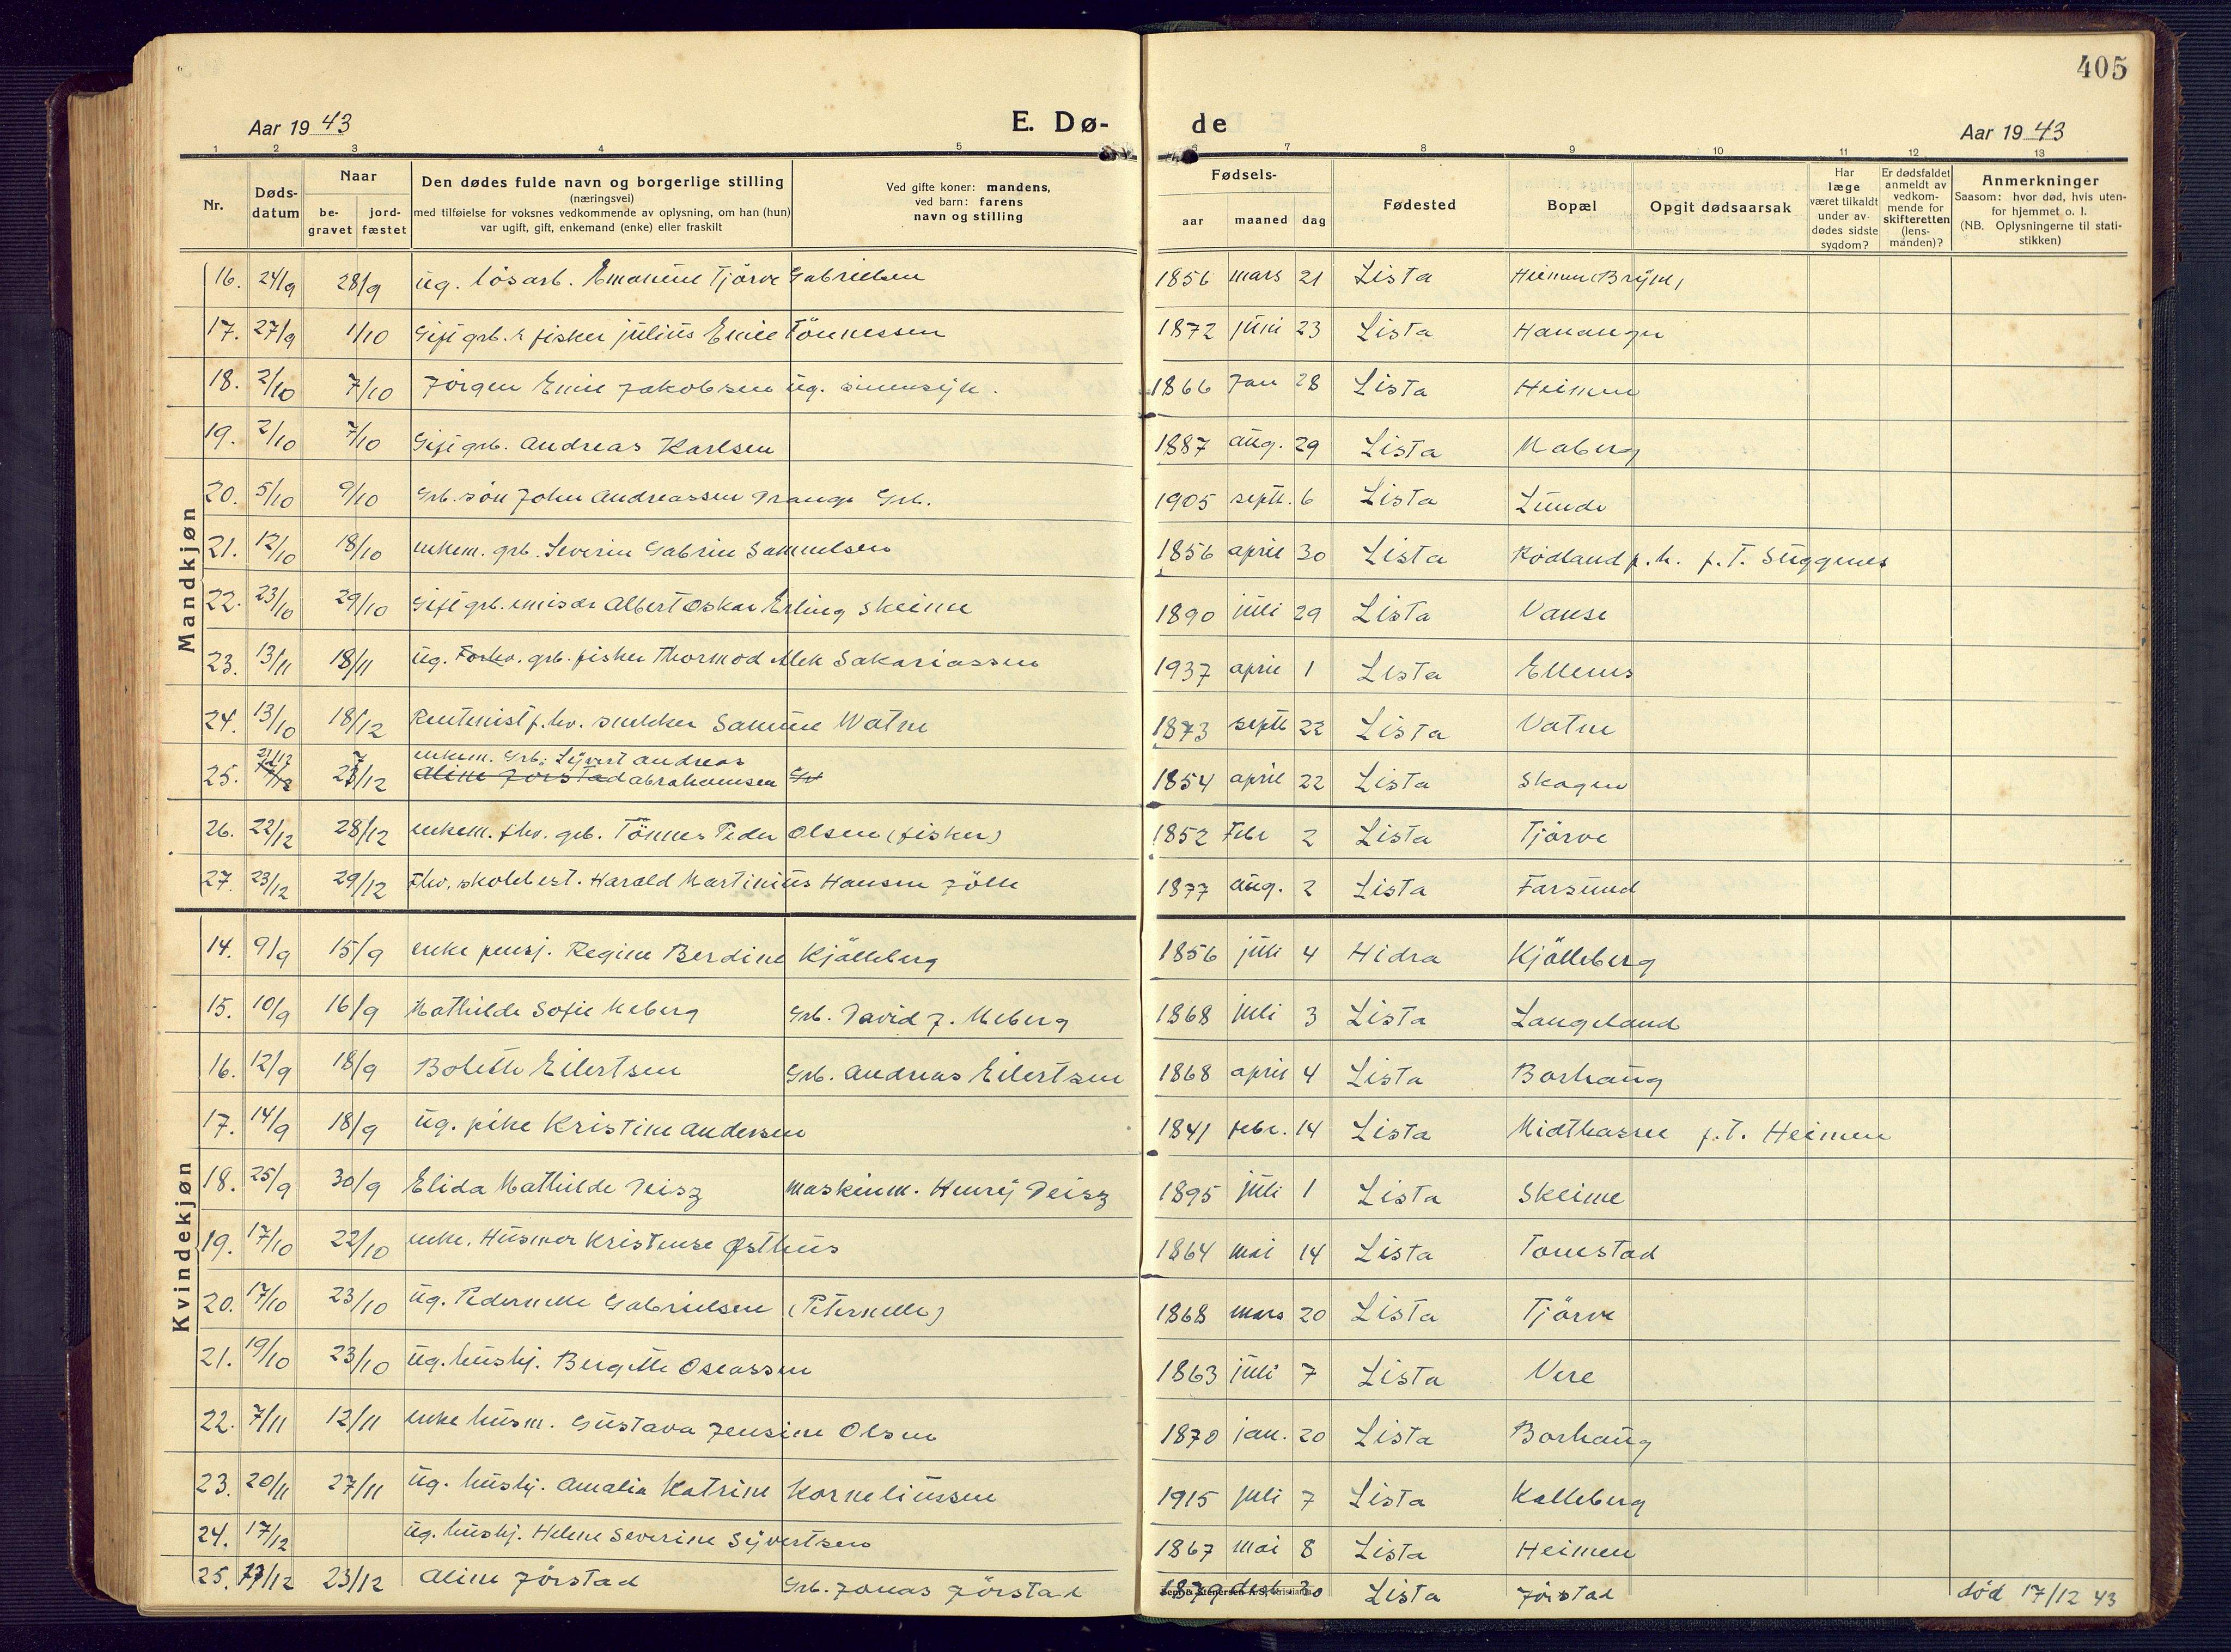 405
Aar 1943 E. Dø- de Aar 1943
1 2 3 4 5 6 7 8 9 10 11 12 13
Nr. Døds-datum Naar be-gravet jord-fæstet Den dødes fulde navn og borgerlige stilling (næringsvei) med tilføielse for voksnes vedkommende av oplysning, om han (hun) var ugift, gift, enkemand (enke) eller fraskilt Ved gifte koner: mandens, ved barn: farens navn og stilling Fødsels- aar maaned dag Fødested Bopæl Opgit dødsaarsak Har læge været tilkaldt under av-dødes sidste sygdom? Er dødsfaldet anmeldt av vedkom-mende for skifteretten (lens-manden)? Anmerkninger Saasom: hvor død, hvis uten-for hjemmet o. l. (NB. Oplysningerne til stati-stikken)
Mandkjøn
16. 24/9 28/9 ug. løsarb. Emanuel Tjörve Gabrielsen 1856 mars 21 Lista Heimen
17. 27/9 1/10 Gift grb. & fisker julius Emil Tönnessen 1872 juni 23 Lista Hananger
18. 2/10 7/10 Jörgen Emil Jakobsen ug. sinnsyk. 1866 Jan 28 Lista Heimen
19. 2/10 7/10 Gift grb. Andreas Karlsen 1887 aug. 29 Lista Maberg
20. 5/10 9/10 Grb. sön John Andreassen Prange Grb. 1905 septb. 6 Lista Lunde
21. 12/10 18/10 enkem. grb. Severin Gabriel Samuelsen 1856 april 30 Lista Rödland p.h. p.T. Stiggenes
22. 23/10 29/10 Gift grb. emisær Albert Oskar Erling Skeime 1890 juli 29 Lista Vanse
23. 13/11 18/11 ug. grb. fisker Thormod Alek Sakariassen 1937 april 1 Lista Ellenes
24. 13/10 18/12 Rentenist f.hv. snekker Samuel Vatne 1873 septb 22 Lista Vatne
25. 21/12 27/12 enkem. Grb. Syvert Andreas
Aline Jörstad Abrahamsen Grb 1854 april 22 Lista Skagen
26. 22/12 28/12 enkem. fhv. grb. Tönnes Peder Olsen (fisker) 1852 Febr 2 Lista Tjörve
27. 23/12 29/12 Fhv. skolebest. Harald Martinius Hansen Jölle 1877 aug. 2 Lista Farsund
Kvindekjøn
14. 9/9 15/9 enke pensj. Regine Berdine Kjölleberg 1856 juli 4 Hidra Kjölleberg
15. 10/9 16/9 Mathilde Sofie Meberg Grb. David J. Meberg 1868 juli 3 Lista Langeland
16. 12/9 18/9 Bolette Eilertsen Grb. Andreas Eilertsen 1868 april 4 Lista Borhaug
17. 14/9 18/9 ug. pike Kristine Andersen 1841 febr. 14 Lista Midthassel p.T. Heimen
18. 25/9 30/9 Elida Mathilde Deisz maskinm. Henry Deisz 1895 juli 1 Lista Skeime
19. 17/10 22/10 enke. Husmor Kristense Østhus 1864 mai 14 Lista Tonestad
20. 17/10 23/10 ug. Pedernelle Gabrielsen (Peternelle) 1868 mars 20 Lista Tjörve
21. 19/10 23/10 ug. hushj. Bergitte Oseassen 1863 juli 7 Lista Vere
22. 7/11 12/11 enke husm. Gustava Jensine Olsen 1870 jan. 20 Lista Borhaug
23. 20/11 27/11 ug. hushj. Amalia Katrine Korneliussen 1915 juli 7 Lista Kalleberg
24. 17/12 ug. hushj. Helene Severine Syvertsen 1867 mai 8 Lista Heimen
25. 17/12 23/12 Aline Jörstad Grb. Jonas Jörstad 1879 desb 30 Lista Jörstad död 17/12 43